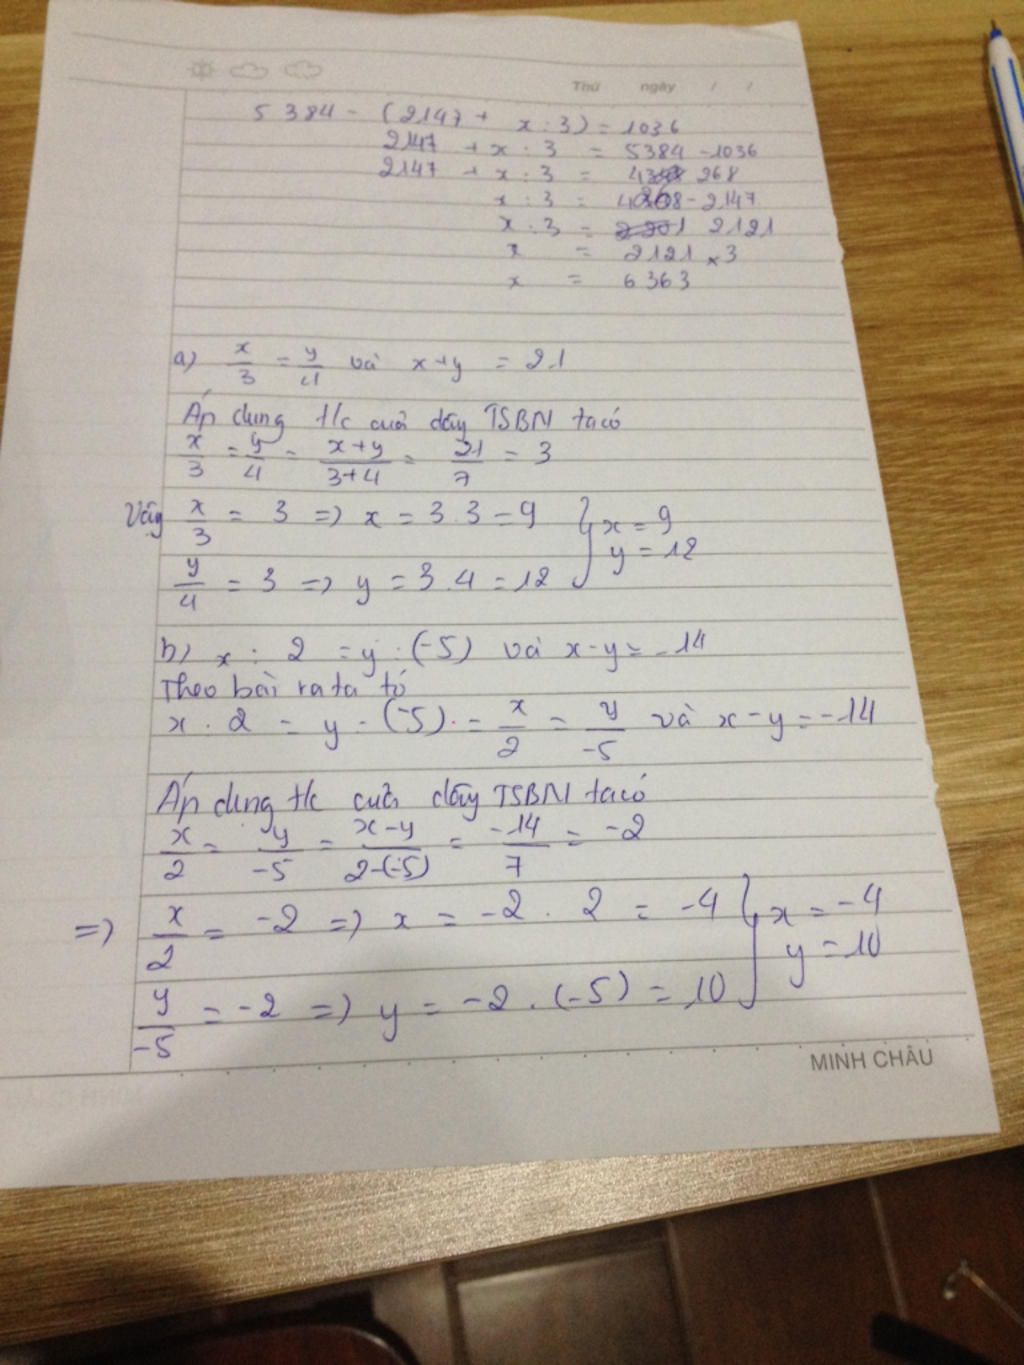 Thứ ngày / /
5384 - (2147 + x : 3) = 1036
2147 + x : 3 = 5384 - 1036
2147 + x : 3 = 4268
x : 3 = 4268 - 2147
x : 3 = 2121
x = 2121 × 3
x = 6363
a) x/3 = y/4 và x+y = 21
Áp dung t/c cuả dãy TSBN ta có
x/3 = y/4 = (x+y)/(3+4) = 21/7 = 3
Vậy x/3 = 3 => x = 3.3 = 9 } x = 9
y = 12
y/4 = 3 => y = 3.4 = 12
b) x : 2 = y : (-5) và x-y = -14
Theo bài ra ta có
x : 2 = y : (-5) = x/2 = y/-5 và x-y = -14
Áp dung t/c cuả dãy TSBN ta có
x/2 = y/-5 = (x-y)/(2-(-5)) = -14/7 = -2
=> x/2 = -2 => x = -2 . 2 = -4 } x = -4
y = 10
y/-5 = -2 => y = -2 . (-5) = 10
MINH CHÂU